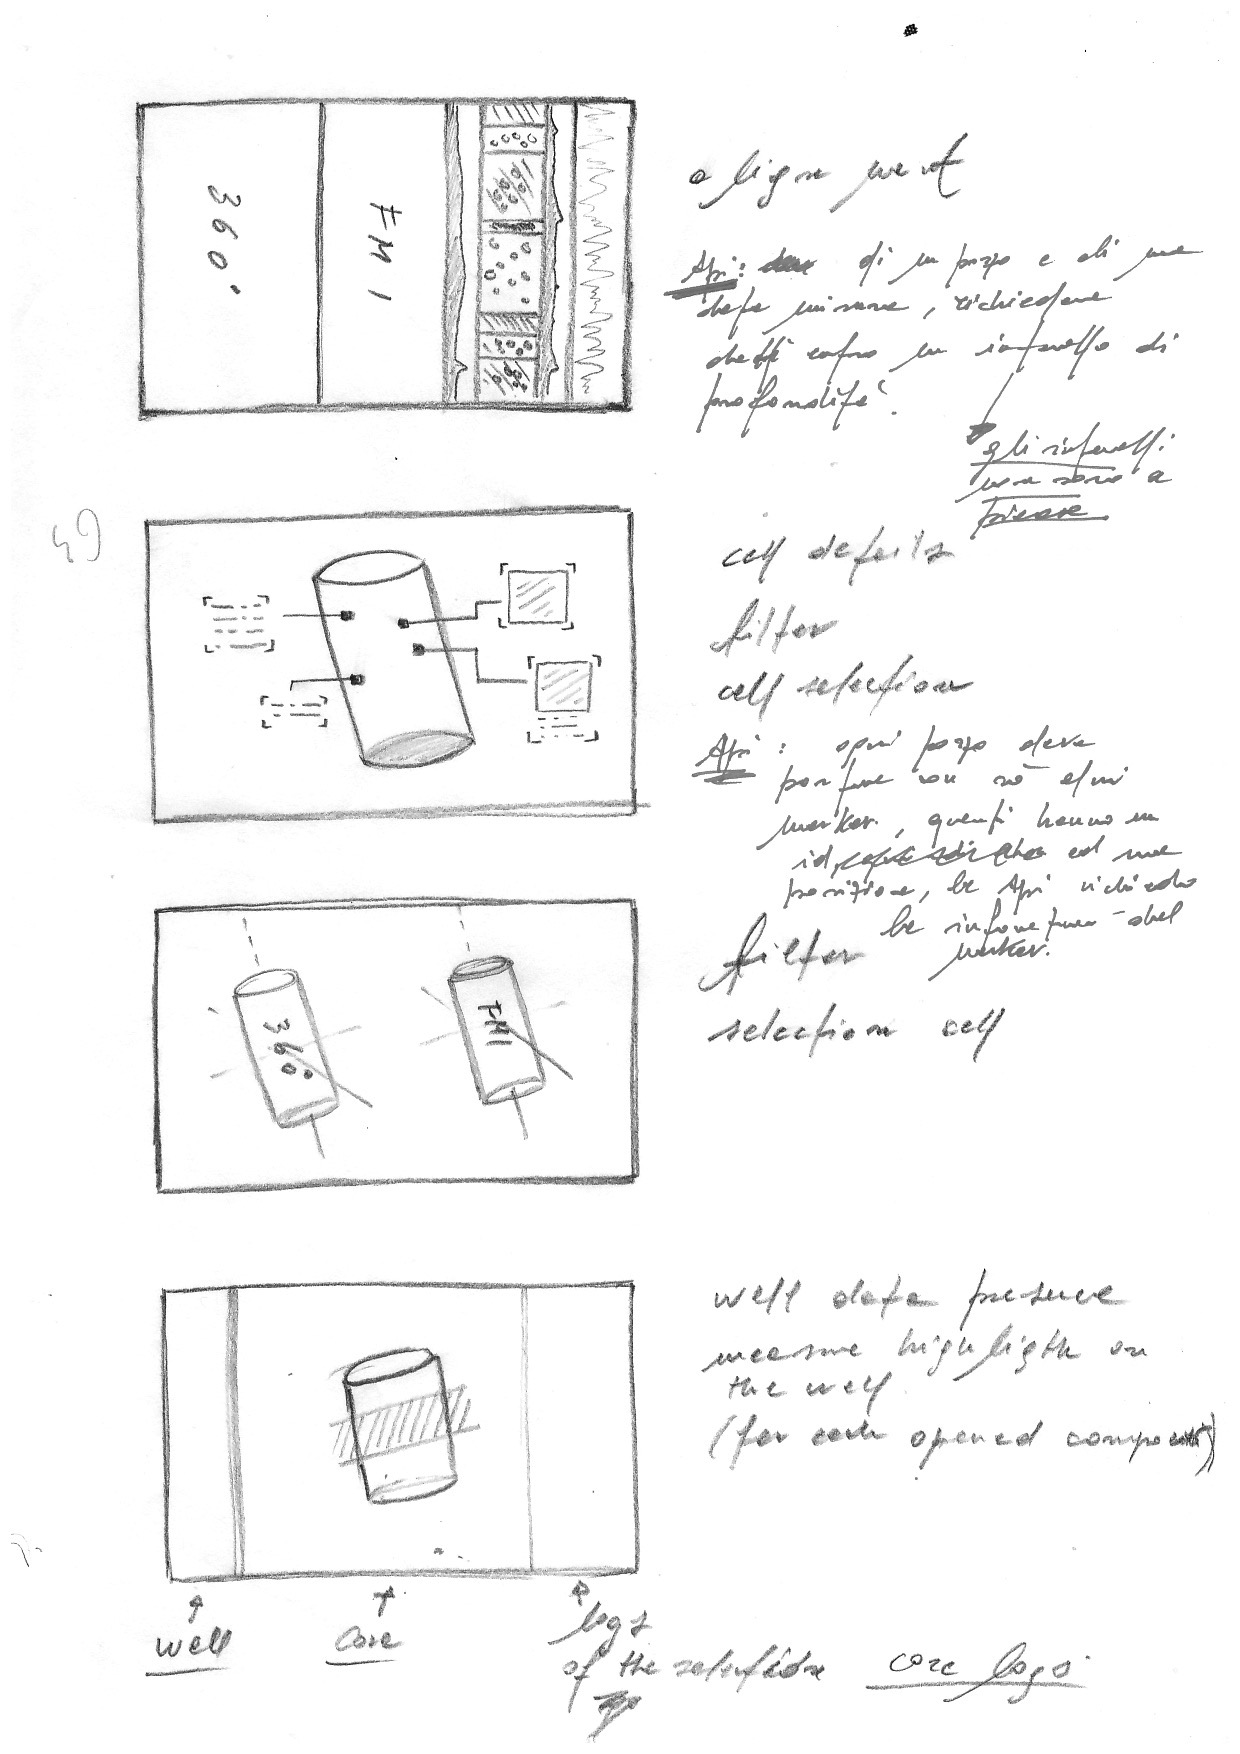 360°
FMI
alignment
Api: di un pozzo e di una
data misura, richiedere
dati entro un intervallo di
profondità.
gli intervalli
non sono a
piacere
cell details
filter
cell selection
Api: ogni pozzo deve
portare con sé dei
marker, questi hanno un
id, ed una
posizione, le Api richiedono
le informazioni del
marker.
360°
FMI
filter
selection cell
well data presence
measure highligth on
the well
(for each opened component)
well
core
logs
of the selection
core logs